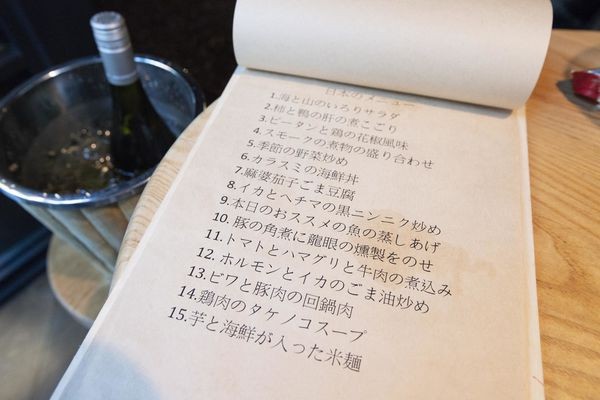 日本のメニュー
1.海と山のいろりサラダ
2.柿と鴨の肝の煮こごり
3.ピータンと鶏の花椒風味
4.スモークの煮物の盛り合わせ
5.季節の野菜炒め
6.カラスミの海鮮丼
7.麻婆茄子ごま豆腐
8.イカとヘチマの黒ニンニク炒め
9.本日のおススメの魚の蒸しあげ
10.豚の角煮に龍眼の燻製をのせ
11.トマトとハマグリと牛肉の煮込み
12.ホルモンとイカのごま油炒め
13.ビワと豚肉の回鍋肉
14.鶏肉のタケノコスープ
15.芋と海鮮が入った米麺